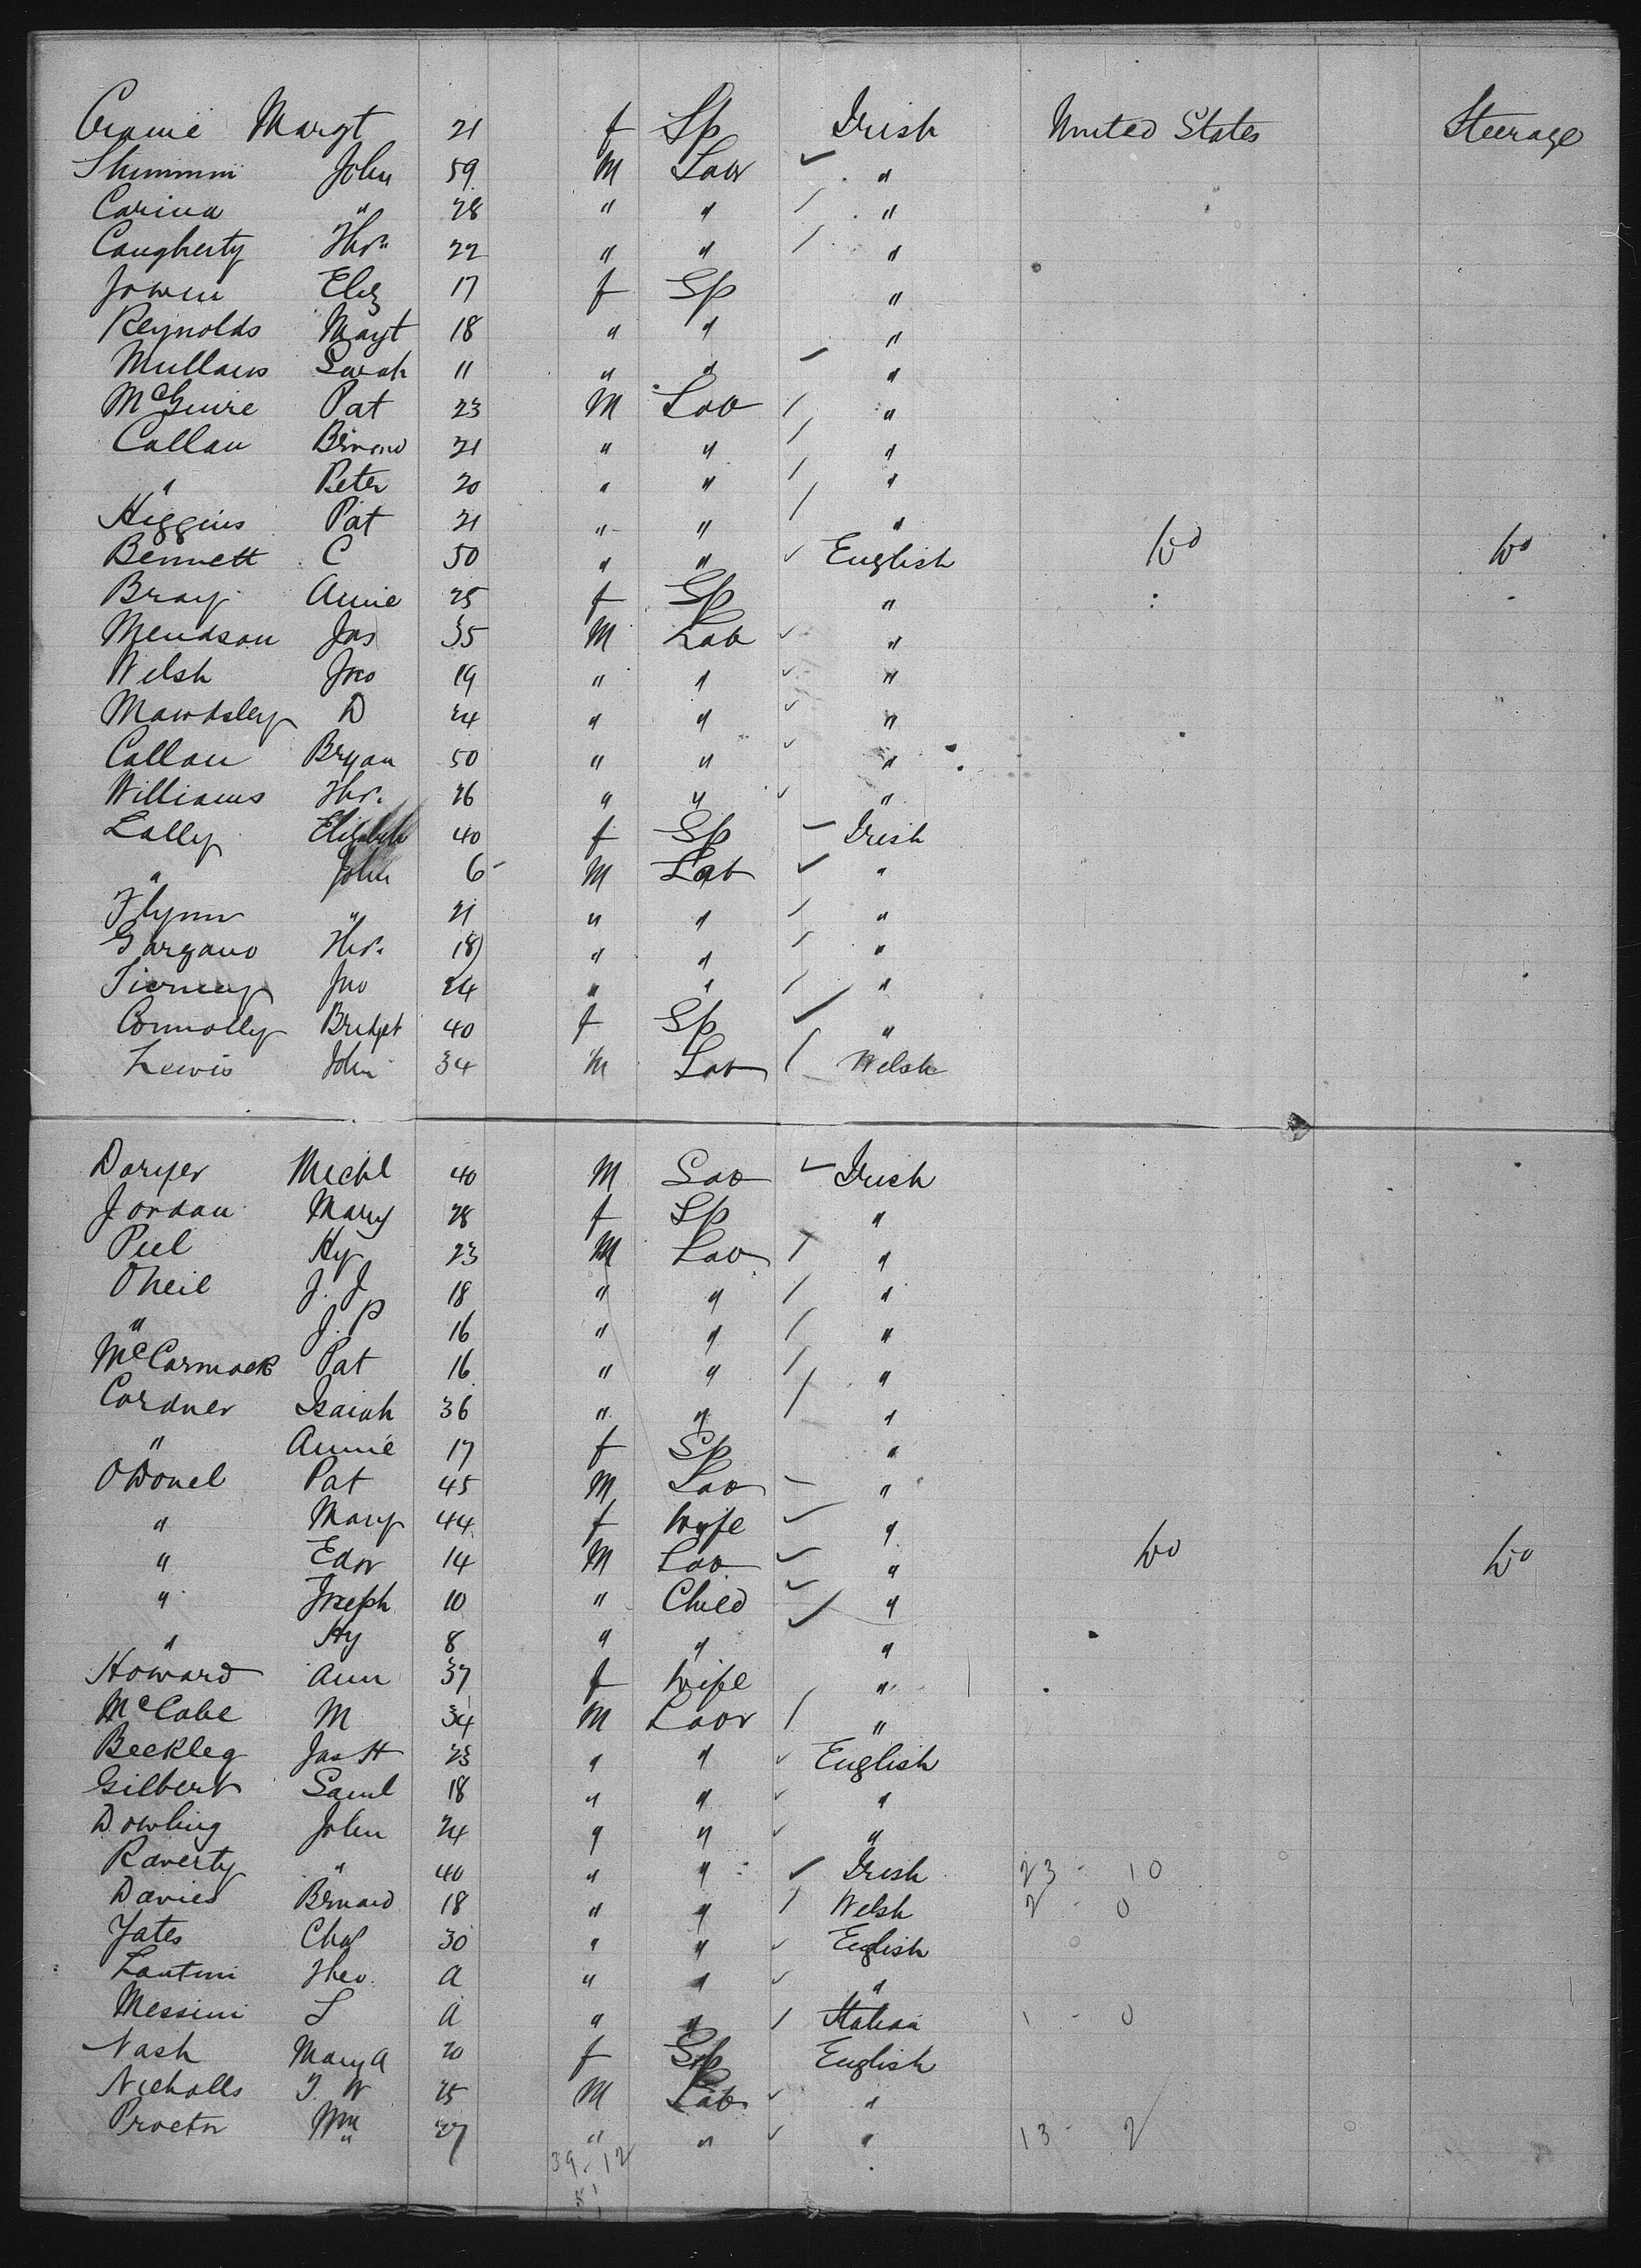 Margt 21 f Sp Irish United States Steerage
John 59 M Labr "
Carina " 28 " " "
Caugherty Thos 22 " " "
Eliz 17 f Sp "
Reynolds Magt 18 " " "
Sarah 11 " " "
McGuire Pat 23 M Lab "
Callan 21 " " "
" Peter 20 " " "
Higgins Pat 21 " " "
Bennett C 50 " " English Do Do
Bray Annie 25 f Sp "
Mendson Jas 35 M Lab "
Welsh Jno 19 " " "
Mawdsley D 24 " " "
Callan Bryan 50 " " "
Williams Thos. 26 " " "
Lally Elizabeth 40 f Sp Irish
" John 6 M Lab "
Flynn " 21 " " "
Gargano Thos. 18 " " "
Tierney Jno 24 " " "
Connolly Bridget 40 f Sp "
Lewis John 34 M Lab Welsh
Michl 40 M Lab Irish
Jordan Mary 28 f Sp "
Peel Hy 23 M Lab "
Oneil J. J 18 " " "
" J. P 16 " " "
McCormack Pat 16 " " "
Cordner Isaiah 36 " " "
" Annie 17 f Sp "
ODonel Pat 45 M Lab "
" Mary 44 f Wife "
" Edw 14 M Lab "
" Joseph 10 " Child "
" Hy 8 " " "
Howard Ann 37 f Wife "
McCabe M 34 M Labr "
Jas H 23 " " English
Gilbert Saml 18 " " "
Dowling John 24 " " "
Raverty " 40 " " Irish 23 - 10
Davies Bernard 18 " " Welsh 2 - 0
Yates Chas 30 " " English
Theo. a " " "
Messini L a " " Italian 1 - 0
Nash Mary A 20 f Sp English
Nicholls J. W 25 M Lab "
Proctor Wm 27 " " " 13 - 2
39 - 12
51